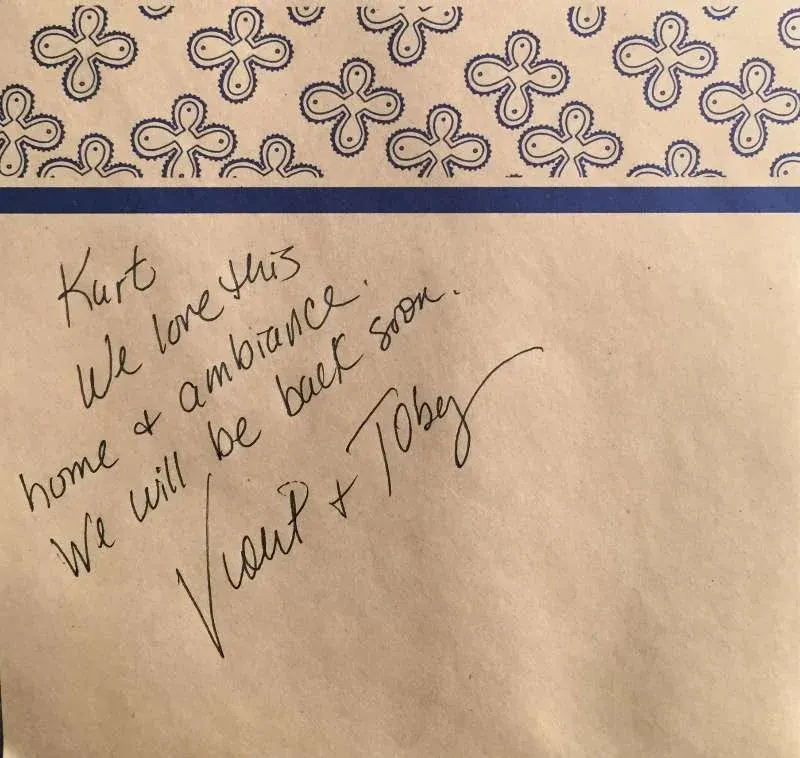 Kurt
We love this
home & ambiance.
We will be back soon.
Violet & Toby